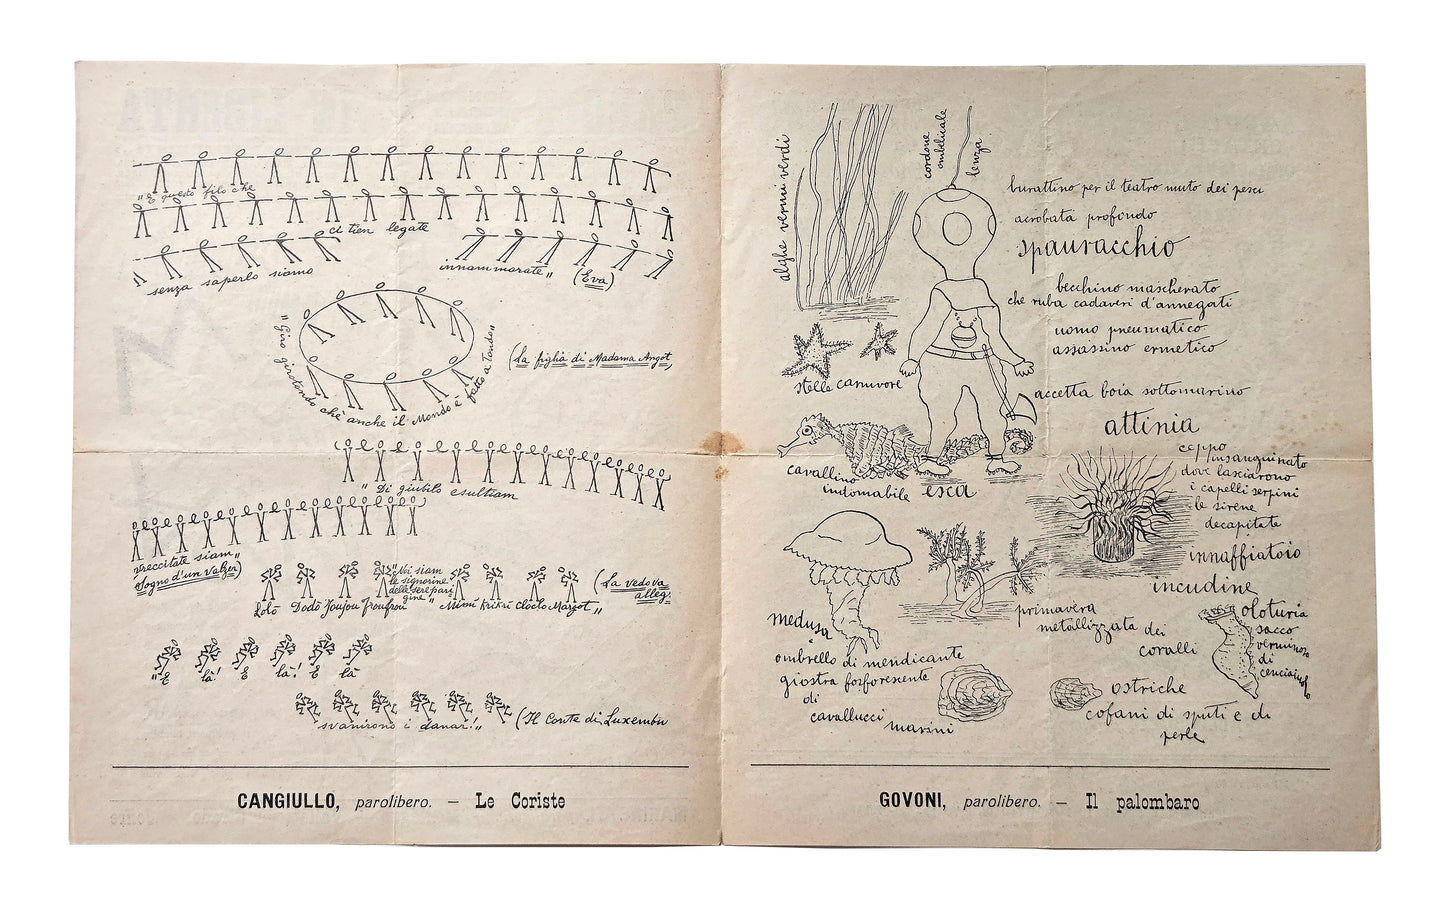 "E questo filo che
ci tien legate
senza saperlo siamo
innammorate" (Eva)
"Giro girotondo chè anche il Mondo è fatto a Tondo"
(La figlia di Madama Angot,
"Di giubilo esultiam
siam"
(Sogno d'un Valzer)
"Noi siam
le signorine
delle sere pari
gine"
Lolò Dodò Joujou Froufrou Mimì Krikri Clòclo Margot"
(La vedova
alleg.
"E là! E là! E là
svanirono i danar!"
(Il Conte di Luxembu
CANGIULLO, parolibero. — Le Coriste
alghe vermi verdi
cordone
ombelicale
lenza
burattino per il teatro muto dei pesci
acrobata profondo
spauracchio
becchino mascherato
che ruba cadaveri d'annegati
uomo pneumatico
assassino ermetico
stelle carnivore
accetta boia sottomarino
attinia
ceppo
insanguinato
dove lasciarono
i capelli serpini
le sirene
decapitate
cavallino
indomabile
esca
innaffiatoio
incudine
medusa
è
ombrello di mendicante
giostra fosforescente
di
cavallucci
marini
primavera
metallizzata dei
coralli
oloturia
sacco
verminoso
di
cenciaiuolo
ostriche
cofani di sputi e di
perle
GOVONI, parolibero. — Il palombaro